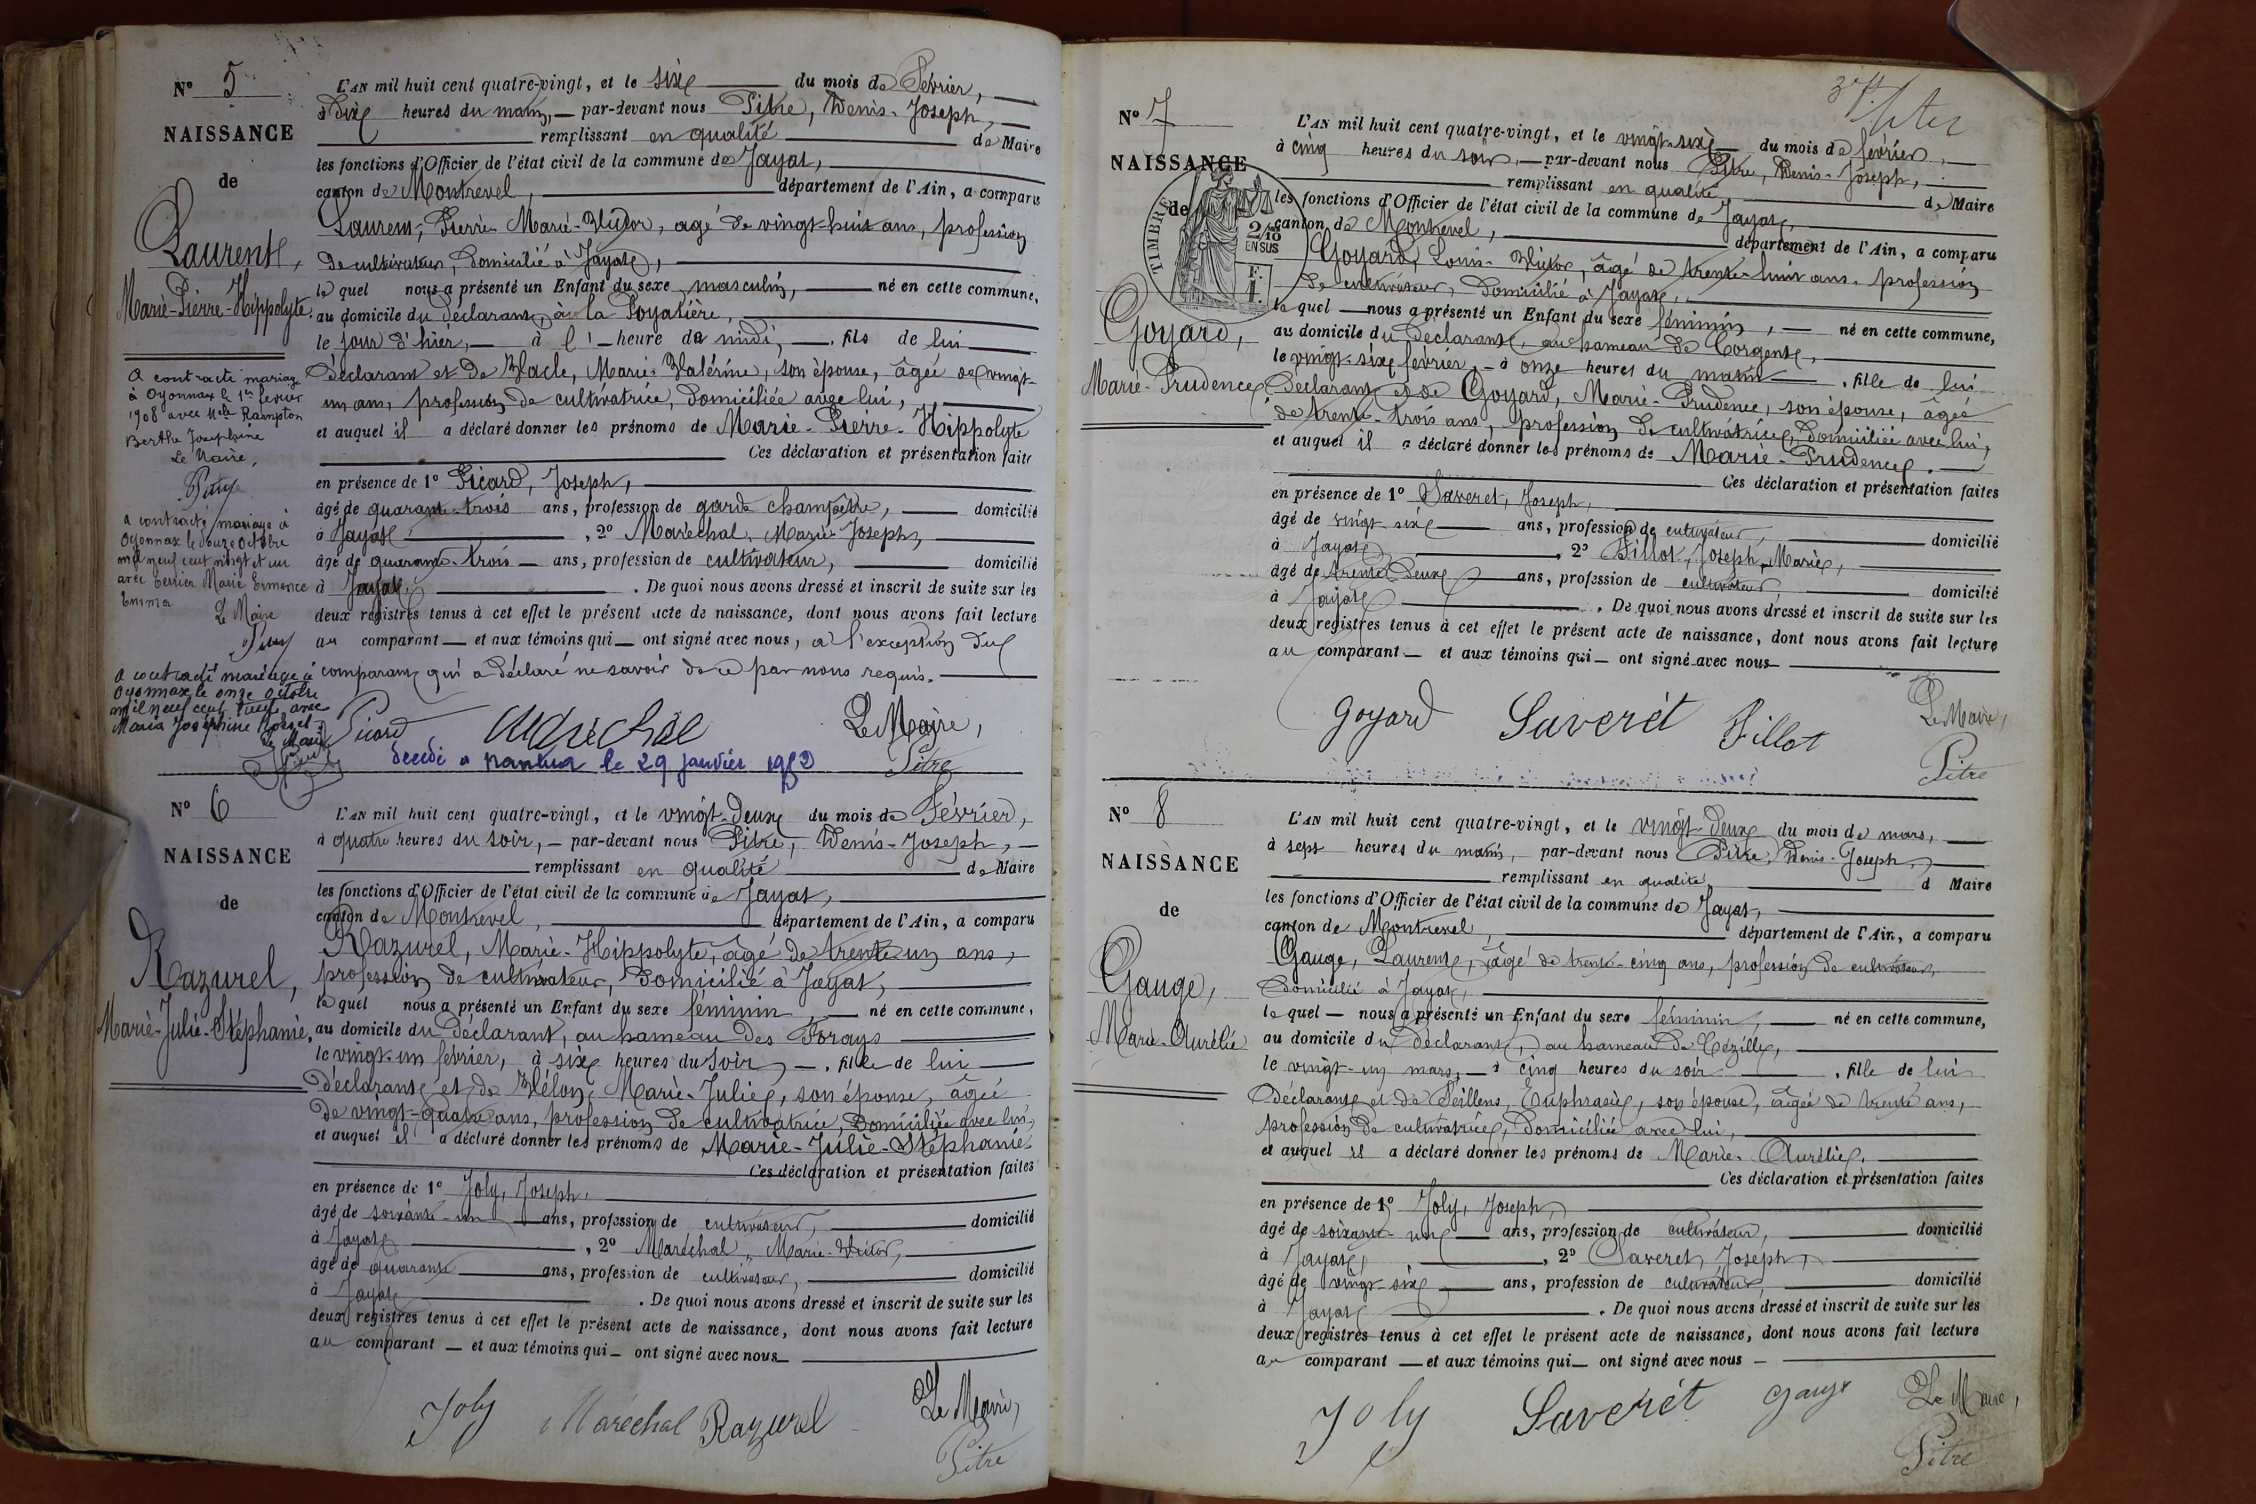 N° 5
NAISSANCE
de
Laurent,
Marie-Pierre-Hippolyte.
A contracté mariage
à Oyonnax le 1er février
1908 avec Melle Rampton
Berthe Joséphine
Le Maire,
a contracté mariage à
Oyonnax le douze octobre
mil neuf cent vingt et un
avec Marie Ermance
Emma
Le Maire
a contracté mariage à
Oyonnax le onze octobre
mil neuf cent avec
Maria Joséphine
Le Maire
L'AN mil huit cent quatre-vingt, et le six du mois de Février,
à dix heures du matin, — par-devant nous Pitre, Denis-Joseph,
remplissant en qualité de Maire
les fonctions d'Officier de l'état civil de la commune de Jayat,
canton de Montrevel, département de l'Ain, a comparu
Laurent, Pierre-Marie-Victor, agé de vingt-huit ans, profession
de cultivateur, domicilié à Jayat,
le quel nous a présenté un Enfant du sexe masculin, né en cette commune,
au domicile du déclarant, à la Poyatière,
le jour d'hier, — à l' — heure de midi, —, fils de lui
déclarant et de Vacle, Marie-Valérine, son épouse, âgée de vingt-
un ans, profession de cultivatrice, domiciliée avec lui,
et auquel il a déclaré donner les prénoms de Marie-Pierre-Hippolyte
Ces déclaration et présentation faites
en présence de 1° Picard, Joseph,
âgé de quarante-trois ans, profession de garde champêtre, domicilié
à Jayat, 2° Maréchal, Marie-Joseph,
âgé de quarante-trois — ans, profession de cultivateur, domicilié
à Jayat. De quoi nous avons dressé et inscrit de suite sur les
deux registres tenus à cet effet le présent acte de naissance, dont nous avons fait lecture
au comparant — et aux témoins qui — ont signé avec nous, à l'exception du
comparant qui a déclaré ne savoir de ce par nous requis.
Picard Maréchal Le Maire,
Pitre
decedé a nantua le 29 janvier 1952
N° 6
NAISSANCE
de
Razurel,
Marie-Julie-Stéphanie,
L'AN mil huit cent quatre-vingt, et le vingt-deux du mois de Février,
à quatre heures du soir, — par-devant nous Pitre, Denis-Joseph, —
remplissant en qualité de Maire
les fonctions d'Officier de l'état civil de la commune de Jayat,
canton de Montrevel, département de l'Ain, a comparu
Razurel, Marie-Hippolyte, âgé de trente un ans,
profession de cultivateur, domicilié à Jayat,
le quel nous a présenté un Enfant du sexe féminin, — né en cette commune,
au domicile du déclarant, au hameau des Forays
le vingt-un février, à six heures du soir, —, fille de lui
déclarant et de Vélon, Marie-Julie, son épouse, âgée
de vingt-quatre ans, profession de cultivatrice, domiciliée avec lui,
et auquel il a déclaré donner les prénoms de Marie-Julie-Stéphanie.
Ces déclaration et présentation faites
en présence de 1° Joly, Joseph,
âgé de soixante-un ans, profession de cultivateur, domicilié
à Jayat, 2° Maréchal, Marie-Victor,
âgé de quarante ans, profession de cultivateur, domicilié
à Jayat. De quoi nous avons dressé et inscrit de suite sur les
deux registres tenus à cet effet le présent acte de naissance, dont nous avons fait lecture
au comparant — et aux témoins qui — ont signé avec nous
Joly Maréchal Razurel Le Maire,
Pitre
N° 7
NAISSANCE
de
TIMBRE
2/10
EN SUS
F.
1
Goyard,
Marie-Prudence
L'AN mil huit cent quatre-vingt, et le vingt-six du mois de février,
à cinq heures du soir, — par-devant nous Pitre, Denis-Joseph,
remplissant en qualité de Maire
les fonctions d'Officier de l'état civil de la commune de Jayat,
canton de Montrevel, département de l'Ain, a comparu
Goyard, Louis-Victor, âgé de trente-huit ans, profession
de cultivateur, domicilié à Jayat,
le quel — nous a présenté un Enfant du sexe féminin, — né en cette commune,
au domicile du déclarant, au hameau de Corgent,
le vingt-six février, à onze heures du matin, fille de lui
déclarant et de Goyard, Marie-Prudence, son épouse, âgée
de trente-trois ans, profession de cultivatrice, domiciliée avec lui,
et auquel il a déclaré donner les prénoms de Marie-Prudence.
Ces déclaration et présentation faites
en présence de 1° Saveret, Joseph,
âgé de vingt-six ans, profession de cultivateur, domicilié
à Jayat, 2° Fillot, Joseph-Marie,
âgé de trente-deux ans, profession de cultivateur, domicilié
à Jayat. De quoi nous avons dressé et inscrit de suite sur les
deux registres tenus à cet effet le présent acte de naissance, dont nous avons fait lecture
au comparant — et aux témoins qui — ont signé avec nous
Goyard Saverét Fillot Le Maire,
Pitre
N° 8
NAISSANCE
de
Gauge,
Marie-Aurélie
L'AN mil huit cent quatre-vingt, et le vingt-deux du mois de mars,
à sept heures du matin, par-devant nous Pitre, Denis-Joseph,
remplissant en qualité d Maire
les fonctions d'Officier de l'état civil de la commune de Jayat,
canton de Montrevel, département de l'Ain, a comparu
Gauge, Laurent, âgé de trente-cinq ans, profession de cultivateur,
domicilié à Jayat,
le quel — nous a présenté un Enfant du sexe féminin, né en cette commune,
au domicile du déclarant, au hameau de Cézille,
le vingt-un mars, — à cinq heures du soir, fille de lui
déclarant et de Peillens, Euphrasie, son épouse, âgée de trente ans,
profession de cultivatrice, domiciliée avec lui,
et auquel il a déclaré donner les prénoms de Marie-Aurélie.
Ces déclaration et présentation faites
en présence de 1° Joly, Joseph,
âgé de soixante-un ans, profession de cultivateur, domicilié
à Jayat, 2° Saveret, Joseph,
âgé de vingt-six ans, profession de cultivateur, domicilié
à Jayat. De quoi nous avons dressé et inscrit de suite sur les
deux registres tenus à cet effet le présent acte de naissance, dont nous avons fait lecture
au comparant — et aux témoins qui — ont signé avec nous —
Joly Saverét Gauge Le Maire,
Pitre